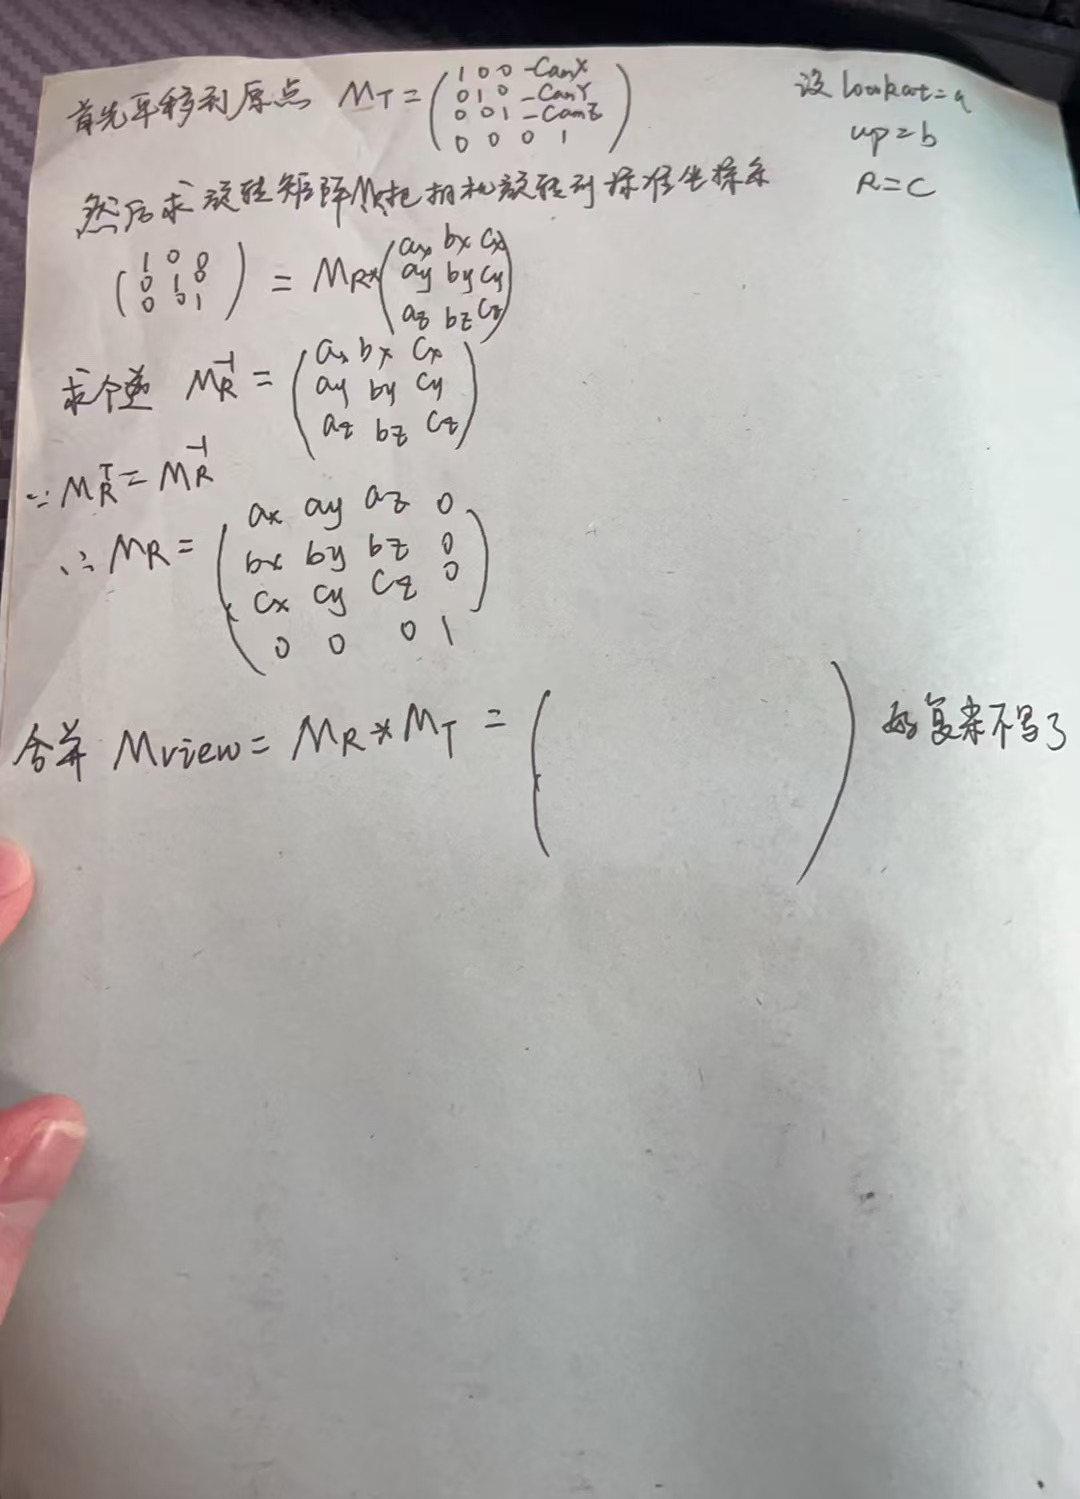 首先平移到原点 MT = ( 1 0 0 -CamX
0 1 0 -CamY
0 0 1 -CamZ
0 0 0 1 )
设 lookat = a
up = b
R = C
然后求旋转矩阵MR把相机旋转到标准坐标系
( 1 0 0
0 1 0
0 0 1 ) = MR* ( ax bx cx
ay by cy
az bz cz )
求个逆 MR^-1 = ( ax bx cx
ay by cy
az bz cz )
∵ MR^T = MR^-1
∴ MR = ( ax ay az 0
bx by bz 0
cx cy cz 0
0 0 0 1 )
合并 Mview = MR * MT = ( ) 好复杂不写了